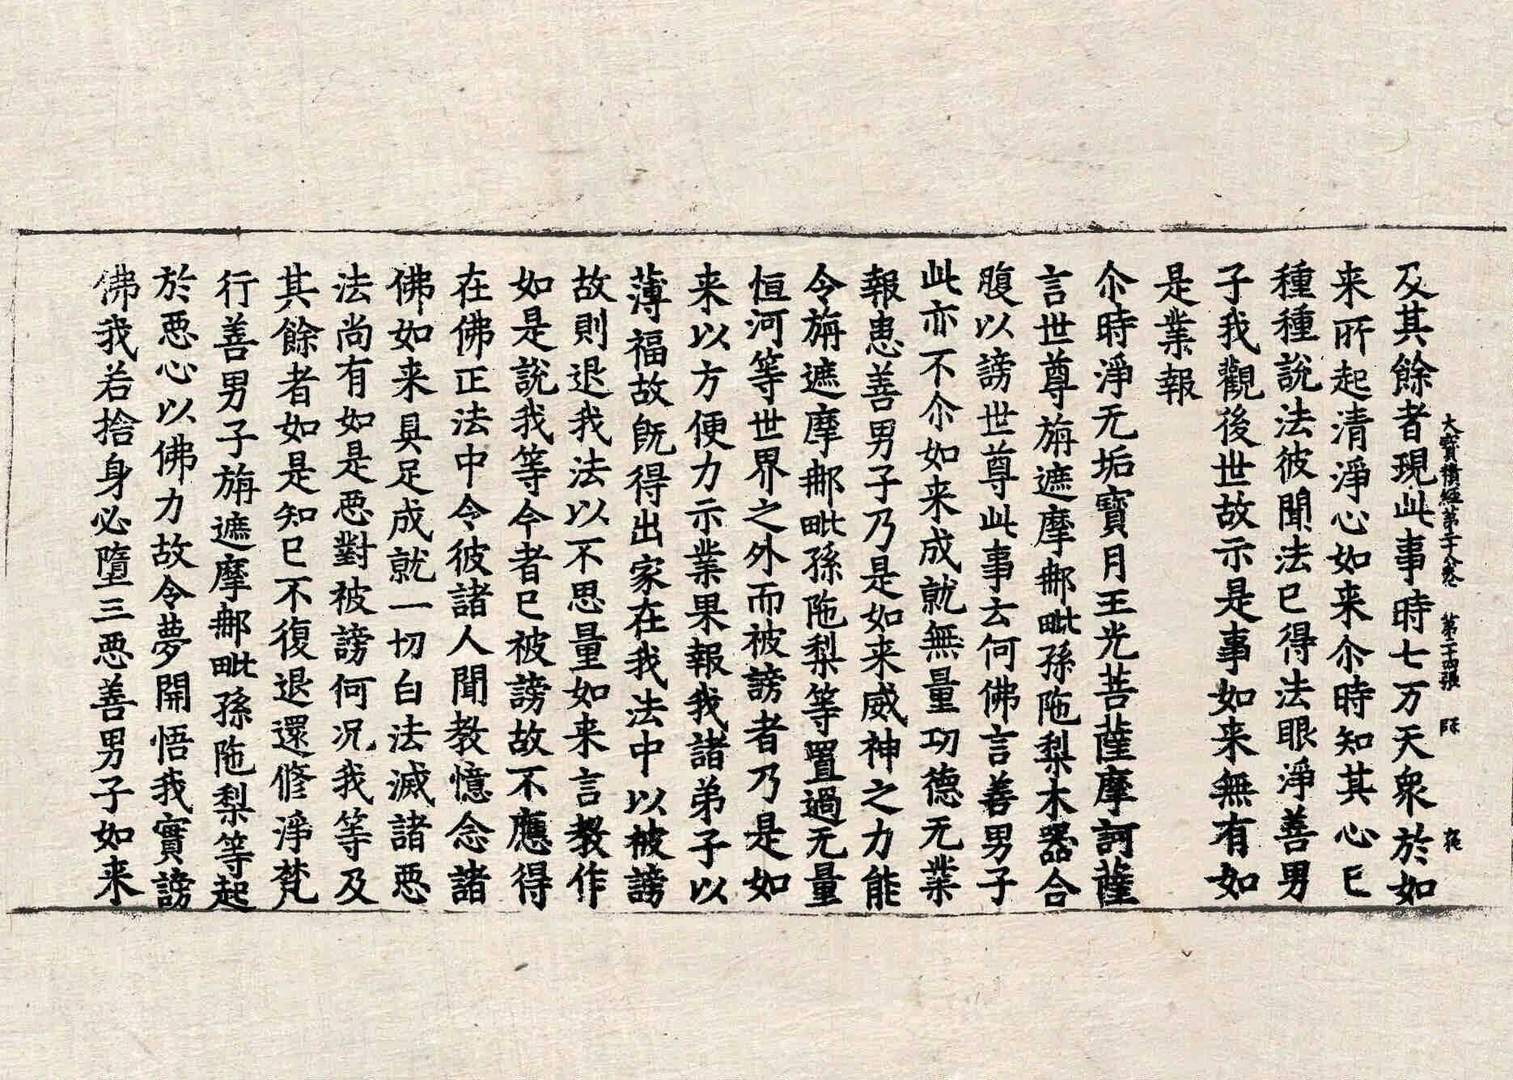 大寶積經第二十八卷　第二十四張　師
及其餘者現此事時七万天衆於如
来所起清淨心如来尒時知其心已
種種說法彼聞法已得法眼淨善男
子我觀後世故示是事如来無有如
是業報
尒時淨无垢寶月王光菩薩摩訶薩
言世尊旃遮摩那毗孫陁梨木器合
腹以謗世尊此事去何佛言善男子
此亦不尒如来成就無量功德无業
報患善男子乃是如来威神之力能
令旃遮摩那毗孫陁梨等置過无量
恒河等世界之外而被謗者乃是如
来以方便力示業果報我諸弟子以
薄福故旣得出家在我法中以被謗
故則退我法以不思量如来言教作
如是說我等今者已被謗故不應得
在佛正法中令彼諸人聞教憶念諸
佛如来具足成就一切白法滅諸惡
法尚有如是惡對被謗何况我等及
其餘者如是知已不復退還修淨梵
行善男子旃遮摩那毗孫陁梨等起
於惡心以佛力故令夢開悟我實謗
佛我若捨身必墮三惡善男子如来